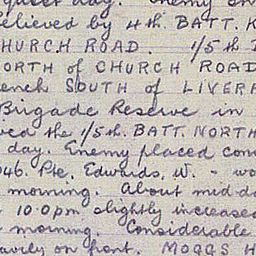 quiet day. Enemy
relieved by 4th. BATT. K
CHURCH ROAD. 1/5th
NORTH of CHURCH ROAD
trench SOUTH of LIVERP
Brigade Reserve in
the 1/5th. BATT. NORTH
day. Enemy placed con
046. Pte. Edwards, W. - wo
morning. About mid-da
10.0pm slightly increased
morning. Considerable
heavily on front. MOGGS H